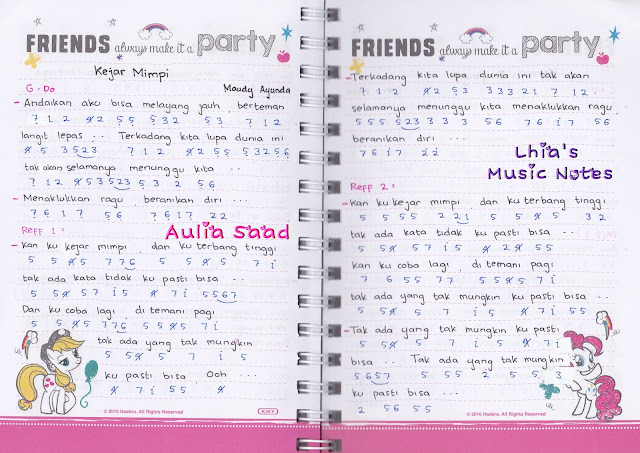 FRIENDS always make it a party
Kejar Mimpi
G = Do
Maudy Ayunda
- Andaikan aku bisa melayang jauh berteman
7 1 2 4 2 5 5 5 3 2 5 3 7 1 2
langit lepas .. Terkadang kita lupa dunia ini
4 5 3 5 2 3 7 1 2 4 2 5 5 5 3 2 5 6
tak akan selamanya menunggu kita ...
7 1 2 4 5 3 5 2 3 5 3 2 5 6
- Menaklukkan ragu beranikan diri ...
7 6 1 7 5 6 7 6 1 7 2 2
Reff 1 :
- Kan ku kejar mimpi dan ku terbang tinggi
5 5 4 5 7 7 6 5 5 4 5 7 i
tak ada kata tidak ku pasti bisa ...
5 5 4 5 7 i 5 4 7 i 5 5 6 7
Dan ku coba lagi di temani pagi
5 5 4 5 7 7 6 5 5 4 5 7 i
tak ada yang tak mungkin
5 5 4 5 7 i 5
ku pasti bisa Ooh ...
4 7 i 5 5 4
© 2016 Hasbro. All Rights Reserved
KIKY
Aulia Saad
FRIENDS always make it a party
- Terkadang kita lupa dunia ini tak akan
7 1 2 4 2 5 3 3 3 3 2 1 7 1 2
selamanya menunggu kita menaklukkan ragu
5 5 5 5 2 3 3 3 3 5 6 7 6 1 7 5 6
beranikan diri ...
7 6 1 7 2 2
Lhia's
Music Notes
Reff 2 :
- Kan ku kejar mimpi dan ku terbang tinggi
5 5 5 5 2 2 1 5 5 4 5 3 2
tak ada kata tidak ku pasti bisa ...
5 5 4 5 7 i 5 4 2 4 5 5
kan ku coba lagi di temani pagi
7 6 5 5 7 7 5 5 4 5 7 i
tak ada yang tak mungkin ku pasti bisa ...
5 5 4 5 7 i 5 4 7 i 5 5
- Tak ada yang tak mungkin ku pasti
5 5 4 5 7 i 5 4 7 i
bisa ... Tak ada yang tak mungkin
5 6 5 7 5 5 2 5 5 3
ku pasti bisa ...
2 5 6 5 5
© 2016 Hasbro. All Rights Reserved